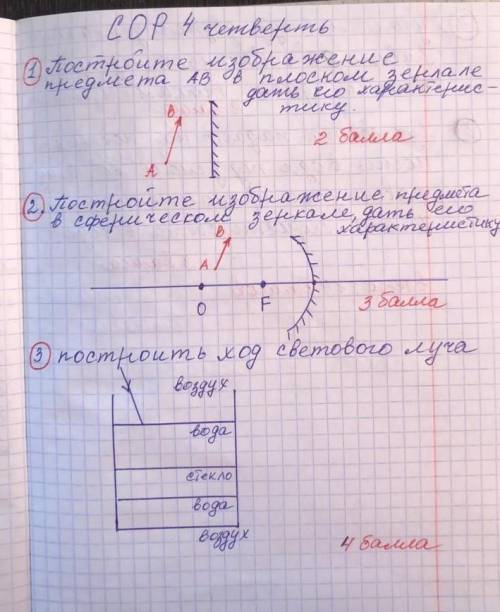 СОР 4 четверть
1 Постройте изображение
предмета АВ в плоском зеркале
дать его характерис-
тику.
В
А
2 балла
2. Постройте изображение предмета
в сферическом зеркале, дать его
характеристику
В
А
О
F
3 балла
3 построить ход светового луча
воздух
вода
стекло
вода
воздух
4 балла